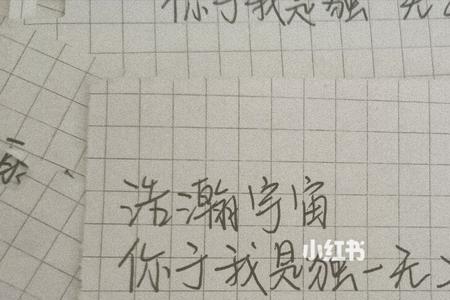 你于我是独一无
浩瀚宇宙
小红书
你于我是独一无